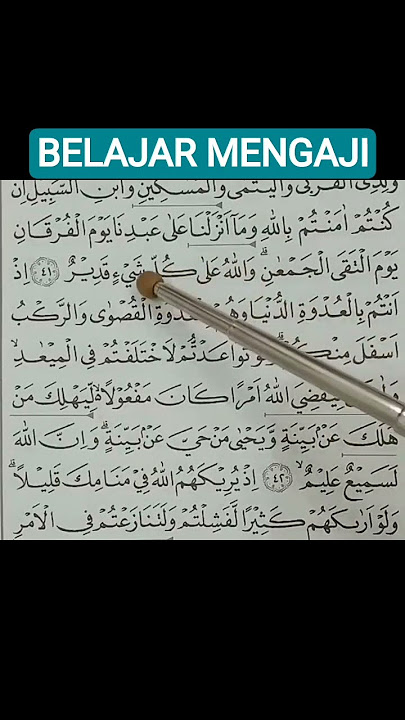 BELAJAR MENGAJI
وَلِذِى الْقُرْبٰى وَالْيَتٰمٰى وَالْمَسٰكِيْنِ وَابْنِ السَّبِيْلِ اِنْ
كُنْتُمْ اٰمَنْتُمْ بِاللّٰهِ وَمَآ اَنْزَلْنَا عَلٰى عَبْدِنَا يَوْمَ الْفُرْقَانِ
يَوْمَ الْتَقَى الْجَمْعٰنِۗ وَاللّٰهُ عَلٰى كُلِّ شَيْءٍ قَدِيْرٌ ٤١ اِذْ
اَنْتُمْ بِالْعُدْوَةِ الدُّنْيَا وَهُمْ الْقُصْوٰى وَالرَّكْبُ
اَسْفَلَ مِنْكُمْ تَوَاعَدْتُّمْ لَاخْتَلَفْتُمْ فِى الْمِيْعٰدِۙ
اللّٰهُ اَمْرًا كَانَ مَفْعُوْلًا ەۙ لِّيَهْلِكَ مَنْ
هَلَكَ عَنْۢ بَيِّنَةٍ وَّيَحْيٰى مَنْ حَيَّ عَنْۢ بَيِّنَةٍۗ وَاِنَّ اللّٰهَ
لَسَمِيْعٌ عَلِيْمٌۙ ٤٢ اِذْ يُرِيْكَهُمُ اللّٰهُ فِيْ مَنَامِكَ قَلِيْلًاۗ
وَلَوْ اَرٰىكَهُمْ كَثِيْرًا لَّفَشِلْتُمْ وَلَتَنَازَعْتُمْ فِى الْاَمْرِ